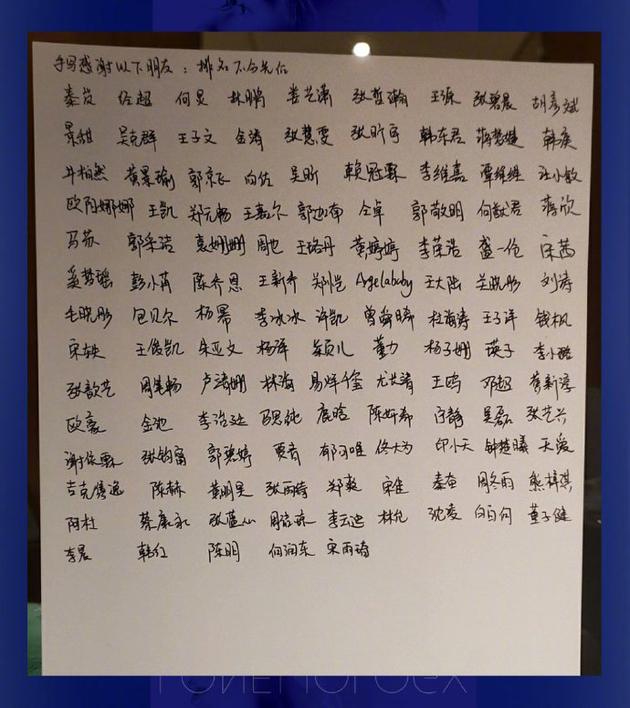 手写感谢以下朋友：排名不分先后
秦岚 经超 何炅 林鹏 娄艺潇 张哲瀚 王源 张碧晨 胡彦斌
景甜 吴克群 王子文 金涛 张慧雯 张昕宇 韩东君 蒋梦婕 韩庚
井柏然 黄景瑜 郭京飞 向佐 吴昕 赖冠霖 李维嘉 谭维维 汪小敏
欧阳娜娜 王凯 郑元畅 王嘉尔 郭迦南 仝卓 郭敬明 何猷君 蒋欣
马苏 郭采洁 袁姗姗 周也 王珞丹 黄婷婷 李荣浩 盛一伦 宋茜
奚梦瑶 彭小苒 陈乔恩 王新乔 郑恺 Angelababy 王大陆 关晓彤 刘涛
毛晓彤 包贝尔 杨幂 李冰冰 许凯 曾舜晞 杜海涛 王子洋 钱枫
宋轶 王俊凯 朱亚文 杨洋 颖儿 董力 杨子姗 瑛子 李小璐
张歆艺 周笔畅 卢靖姗 林海 易烊千玺 尤长靖 王鸥 邓超 黄新淳
欧豪 金池 李治廷 马思纯 鹿晗 陈妍希 白静 吴磊 张艺兴
谢依霖 张钧甯 郭碧婷 贾青 郁可唯 佟大为 印小天 钟楚曦 天爱
吉克隽逸 陈赫 黄明昊 张雨绮 郑爽 宋佳 秦奋 周冬雨 熊梓淇
阿杜 蔡康永 张蓝心 周依琼 李云迪 林允 沈凌 白白何 董子健
李晨 韩红 陈明 何润东 宋雨琦